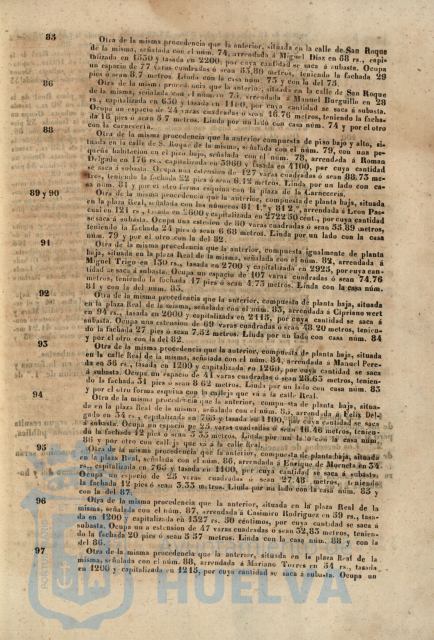 83
Otra de la misma procedencia que la anterior, situada en la calle de San Roque
de la misma, señalada con el núm. 74, arrendada á Miguel Diaz en 68 rs., capi-
talizada en 1530 y tasada en 2200, por cuya cantidad se saca á subasta. Ocupa
un espacio de 77 varas cuadradas ó sean 53,80 metros, teniendo la fachada 29
pies ó sean 8.7 metros. Linda con la casa núm. 75 y con la del 73
86
Otra de la misma procedencia que la anterior, situada en la calle de San Roque
de la misma, señalada con el núm. 75, arrendada á Manuel Burguillo en 28
rs., capitalizada en 630 y tasada en 1100, por cuya cantidad se saca á subasta.
Ocupa un espacio de 24 varas cuadradas ó sean 16.76 metros, teniendo la facha-
da 16 pies ó sean 3.7 metros. Linda por un lado con casa núm. 74 y por el otro
con la carnecería.
88
Otra de la misma procedencia que la anterior compuesta de piso bajo y alto, si-
tuada en la calle de S. Roque de la misma, señalada con el núm. 79, con una pe-
queña habitacion en piso bajo, señalada con el núm. 78, arrendada á Roman
Delgado en 176 rs., capitalizada en 3960 y tasada en 4100, por cuya cantidad
se saca á subasta. Ocupa una estension de 127 varas cuadradas ó sean 88.73 me-
tros, teniendo la fachada 22 pies ó sean 6.12 metros. Linda por un lado con ca-
sa núm. 81 y por el otro forma esquina con la plaza de la Carnecería.
89 y 90
Otra de la misma procedencia que la anterior, compuesta de planta baja, situada
en la plaza Real, señalada con los números 81 1.º y 81 2.º, arrendada á Leon Pas-
cual en 121 rs., tasada en 2600 y capitalizada en 2722 50 cent., por cuya cantidad
se saca á subasta. Ocupa una estension de 80 varas cuadradas ó sean 55.89 metros,
teniendo la fachada 24 pies ó sean 6 68 metros. Linda por un lado con la casa
núm. 79 y por el otro con la del 82.
91
Otra de la misma procedencia que la anterior, compuesta igualmente de planta
baja, situada en la plaza Real de la misma, señalada con el núm. 82, arrendada á
Miguel Trigo en 130 rs., tasada en 2700 y capitalizada en 2925, por cuya can-
tidad se saca á subasta. Ocupa un espacio de 107 varas cuadradas ó sean 74,76
metros, teniendo la fachada 17 pies ó sean 4.73 metros. Linda con la casa núm.
81 y con la del núm. 83.
92
Otra de la misma procedencia que la anterior, compuesta de planta baja, situada
en la plaza Real de la misma, señalada con el núm. 83, arrendada á Cipriano wert
en 94 rs., tasada en 2000 y capitalizada en 2115, por cuya cantidad se saca á
subasta. Ocupa una estension de 69 varas cuadradas ó sean 48.20 metros, tenien-
do la fachada 27 pies ó sean 7.52 metros. Linda por un lado con casa núm. 84
y por el otro con la del 82.
93
Otra de la misma procedencia que la anterior, compuesta de planta baja, situada
en la calle Real de la misma, señalada con el núm. 84, arrendada á Manuel Pere-
da en 56 rs., tasada en 1200 y capitalizada en 1260, por cuya cantidad se saca
á subasta. Ocupa un espacio de 41 varas cuadradas ó sean 28.65 metros, tenien-
do la fachada 31 pies ó sean 8 62 metros. Linda por un lado con casa núm. 83
y por el otro forma esquina con la calleja que va á la calle Real.
94
Otra de la misma procedencia que la anterior, compuesta de planta baja, situa-
da en la plaza Real de la misma, señalada con el núm. 85, arrendada á Felix Del-
gado en 34 rs., capitalizada en 765 y tasada en 1100, por cuya cantidad se saca
á subasta. Ocupa un espacio de 25 varas cuadradas ó sean 16.46 metros, tenien-
do la fachada 12 pies ó sean 3 35 metros. Linda por un lado con la casa núm.
86 y por otro con calleja que vá á la calle Real.
95
Otra de la misma procedencia que la anterior, compuesta de planta baja, situada
en la plaza Real, señalada con el núm. 86, arrendada á Enrique de Morueta en 34
rs., capitalizada en 765 y tasada en 1100, por cuya cantidad se saca á subasta.
Ocupa un espacio de 25 varas cuadradas ó sean 27.48 metros, teniendo
la fachada 12 pies ó sean 3.35 metros. Linda por un lado con la casa núm. 85 y
con la del 87.
96
Otra de la misma procedencia que la anterior, situada en la plaza Real de la
misma, señalada con el núm. 87, arrendada á Casimiro Rodriguez en 59 rs., tasa-
da en 1200 y capitalizada en 1327 rs. 50 céntimos, por cuya cantidad se saca á
subasta. Ocupa una estension de 47 varas cuadradas ó sean 32,83 metros, tenien-
do la fachada 20 pies ó sean 5 57 metros. Linda con la casa núm. 88 y con la
del 86.
97
Otra de la misma procedencia que la anterior, situada en la plaza Real de la
misma, señalada con el núm. 88, arrendada á Mariano Torres en 54 rs., tasada
en 1200 y capitalizada en 1215, por cuya cantidad se saca á subasta. Ocupa un
HUELVA